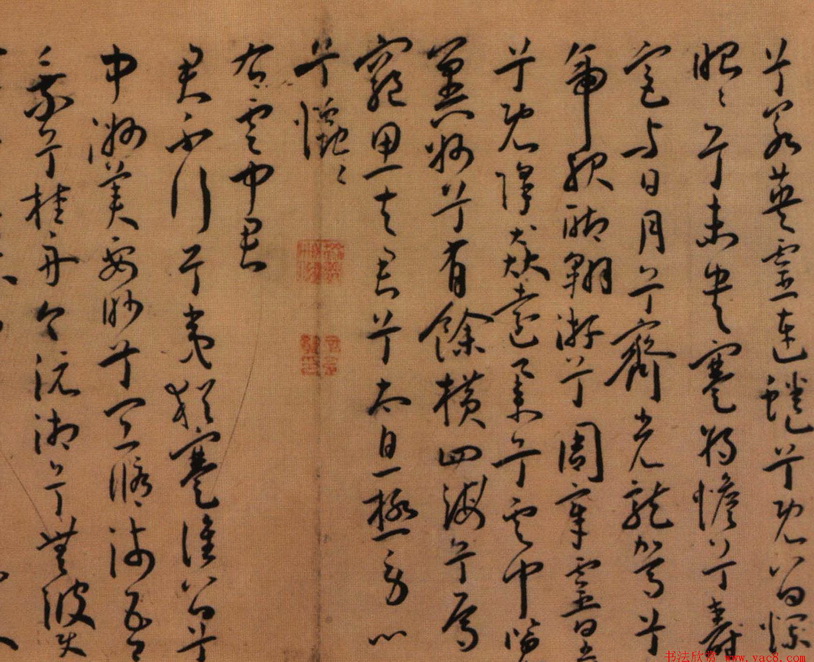 兮若英靈連蜷兮既留爛
昭〻兮未央蹇將憺兮壽
宮与日月兮齊光龍駕兮
帝服聊翱游兮周章靈皇
兮既降猋遠舉兮雲中覽
冀州兮有餘橫四海兮焉
窮思夫君兮太息極勞心
兮𢥞〻
右雲中君
君不行兮夷猶蹇誰留兮
中洲美要眇兮宜脩沛吾
乘兮桂舟令沅湘兮無波使
书法欣赏 www.yac8.com